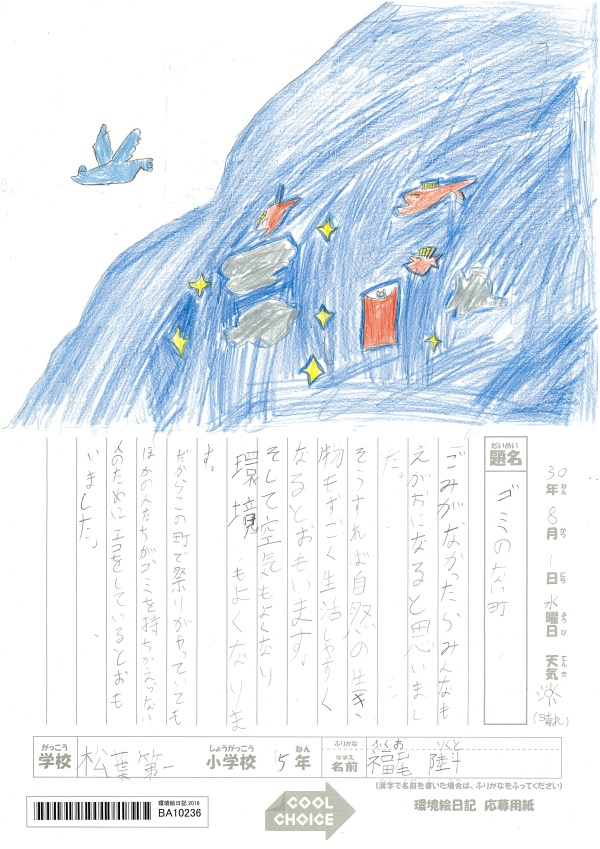 30年ねん 8月がつ 1日にち 水曜日ようび 天気てんき
(晴れ)
だいめい
題名
ゴミのない町
「ごみがなかったらみんなも
えがおになると思いまし
た。
そうすれば自然の生き
物もすごく生活しやすく
なるとおもいます。
そして空気もよくなり
環境もよくなりま
す。
だからこの町で祭りがやっていても
ほかの人たちがゴミを持ちかえらない
人のためにエコをしているとおも
いました。
がっこう
学校
松葉第一
しょうがっこう
小学校
5年ねん
ふりがな
なまえ
名前
ふくお りくと
福尾 陸斗
(漢字で名前を書いた場合は、ふりがなをふってください)
環境絵日記2018
BA10236
COOL
CHOICE
環境絵日記 応募用紙